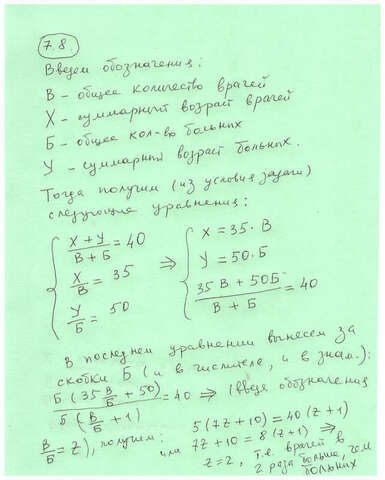 7.8.
Введем обозначения:
В – общее количество врачей
Х – суммарный возраст врачей
Б – общее кол-во больных
У – суммарный возраст больных.
Тогда получим (из условия задачи)
следующие уравнения:
{ (Х + У)/(В + Б) = 40
Х/В = 35
У/Б = 50
⇒ { Х = 35 · В
У = 50 · Б
(35В + 50Б)/(В + Б) = 40
В последнем уравнении вынесем за
скобки Б (и в числителе, и в знам.):
Б(35 В/Б + 50)/Б(В/Б + 1) = 40 ⇒ (введя обозначения
В/Б = z), получим: 5(7z + 10) = 40(z + 1)
или 7z + 10 = 8(z + 1) ⇒
z = 2, т.е. врачей в
2 раза больше, чем
больных